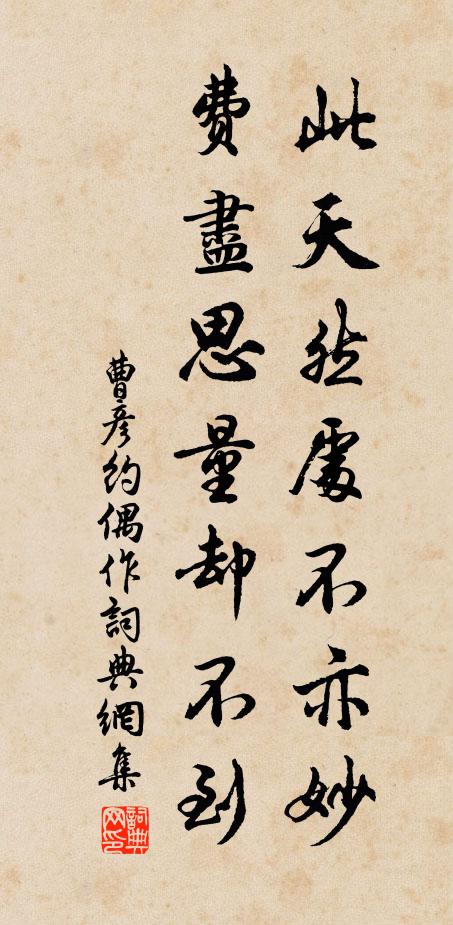 此天然處不亦妙
費盡思量却不到
曹彦約偶作詞典網集
詞典網印